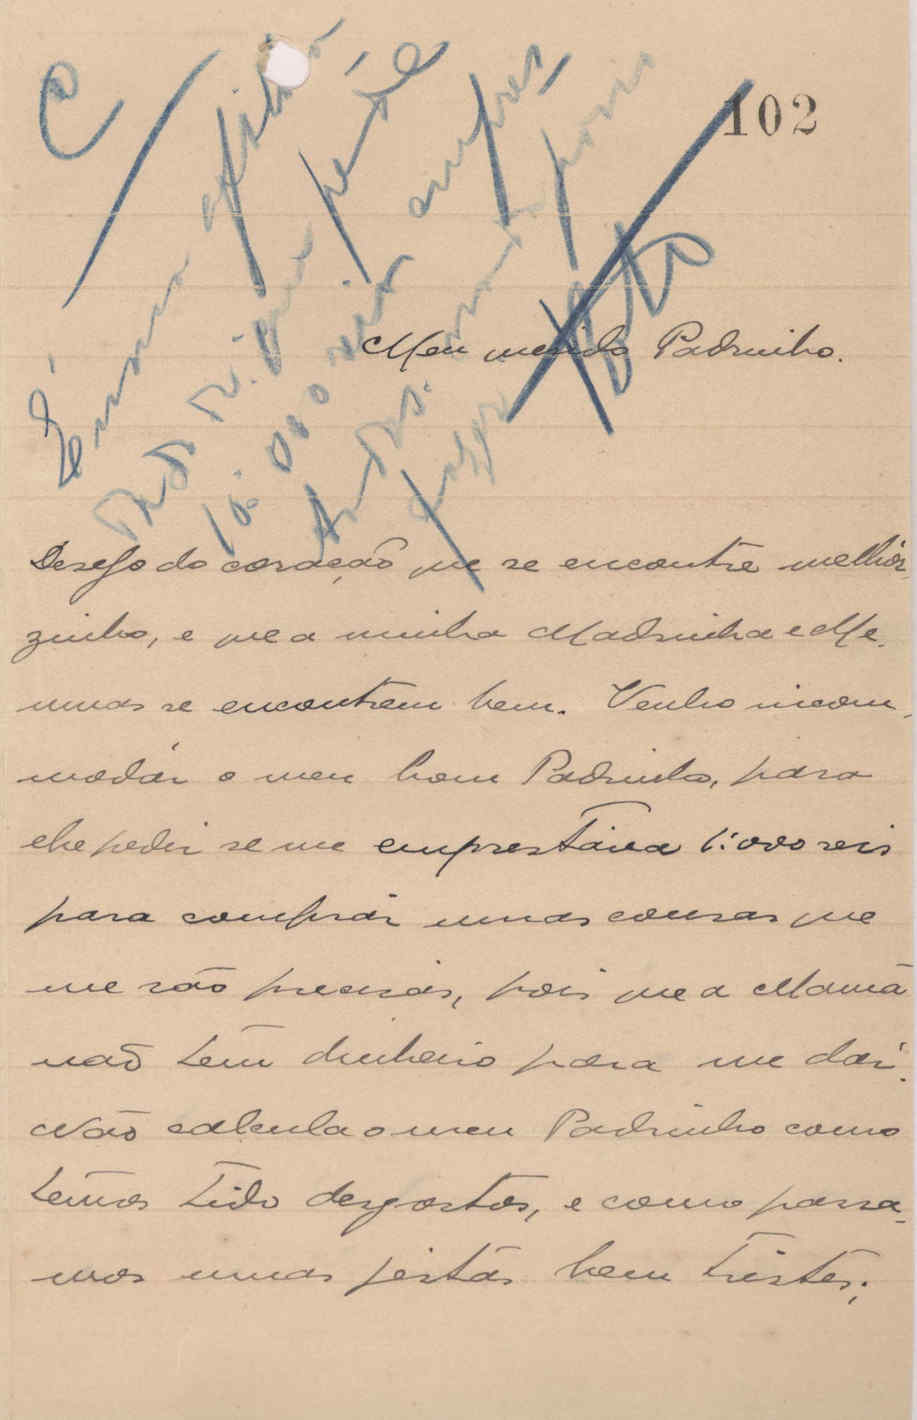 C
102
É uma afilha
da do R. que pede
10:000 reis empres
tados.
Meu querido Padrinho.
Desejo do coração que se encontre melhor-
zinho, e que a minha Madrinha e Me-
ninas se encontrem bem. Venho incom-
modár o meu bom Padrinho, para
lhe pedir se me emprestáva 1:000 reis
para comprár umas cousas que
me são precisas, pois que a Mamã
não tem dinheiro para me dár.
Não calcula o meu Padrinho como
temos tido desgostos, e como passa-
mos umas féstas bem tristes;